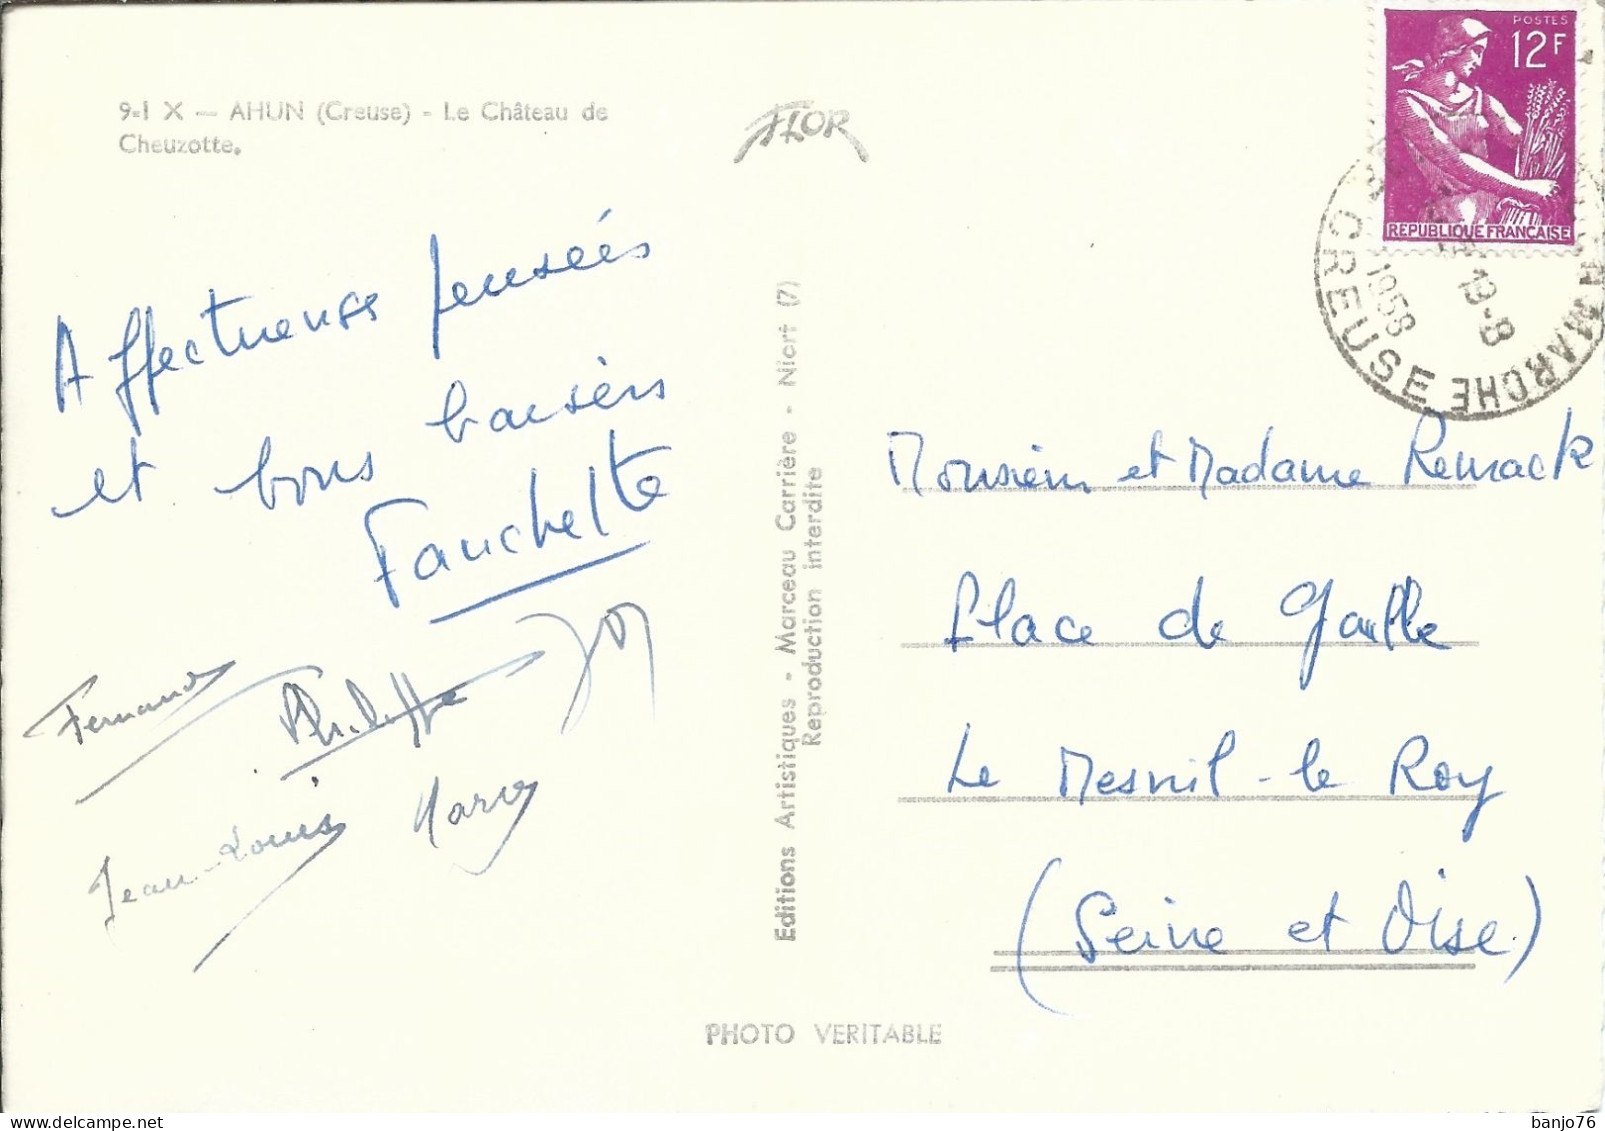 9-1 X — AHUN (Creuse) - Le Château de
Cheuzotte.
FLOR
POSTES
12F
REPUBLIQUE FRANÇAISE
19-8
1958
MARCHE
CREUSE
Affectueuses pensées
et bons baisers
Fanchette
Fernand
Philippe
Jean-Louis
Marcy
Editions Artistiques - Marceau Carrière - Niort (7)
Reproduction interdite
Monsieur et Madame Remack
place de Gaulle
Le Mesnil-le Roy
(Seine et Oise)
PHOTO VERITABLE
banjo76